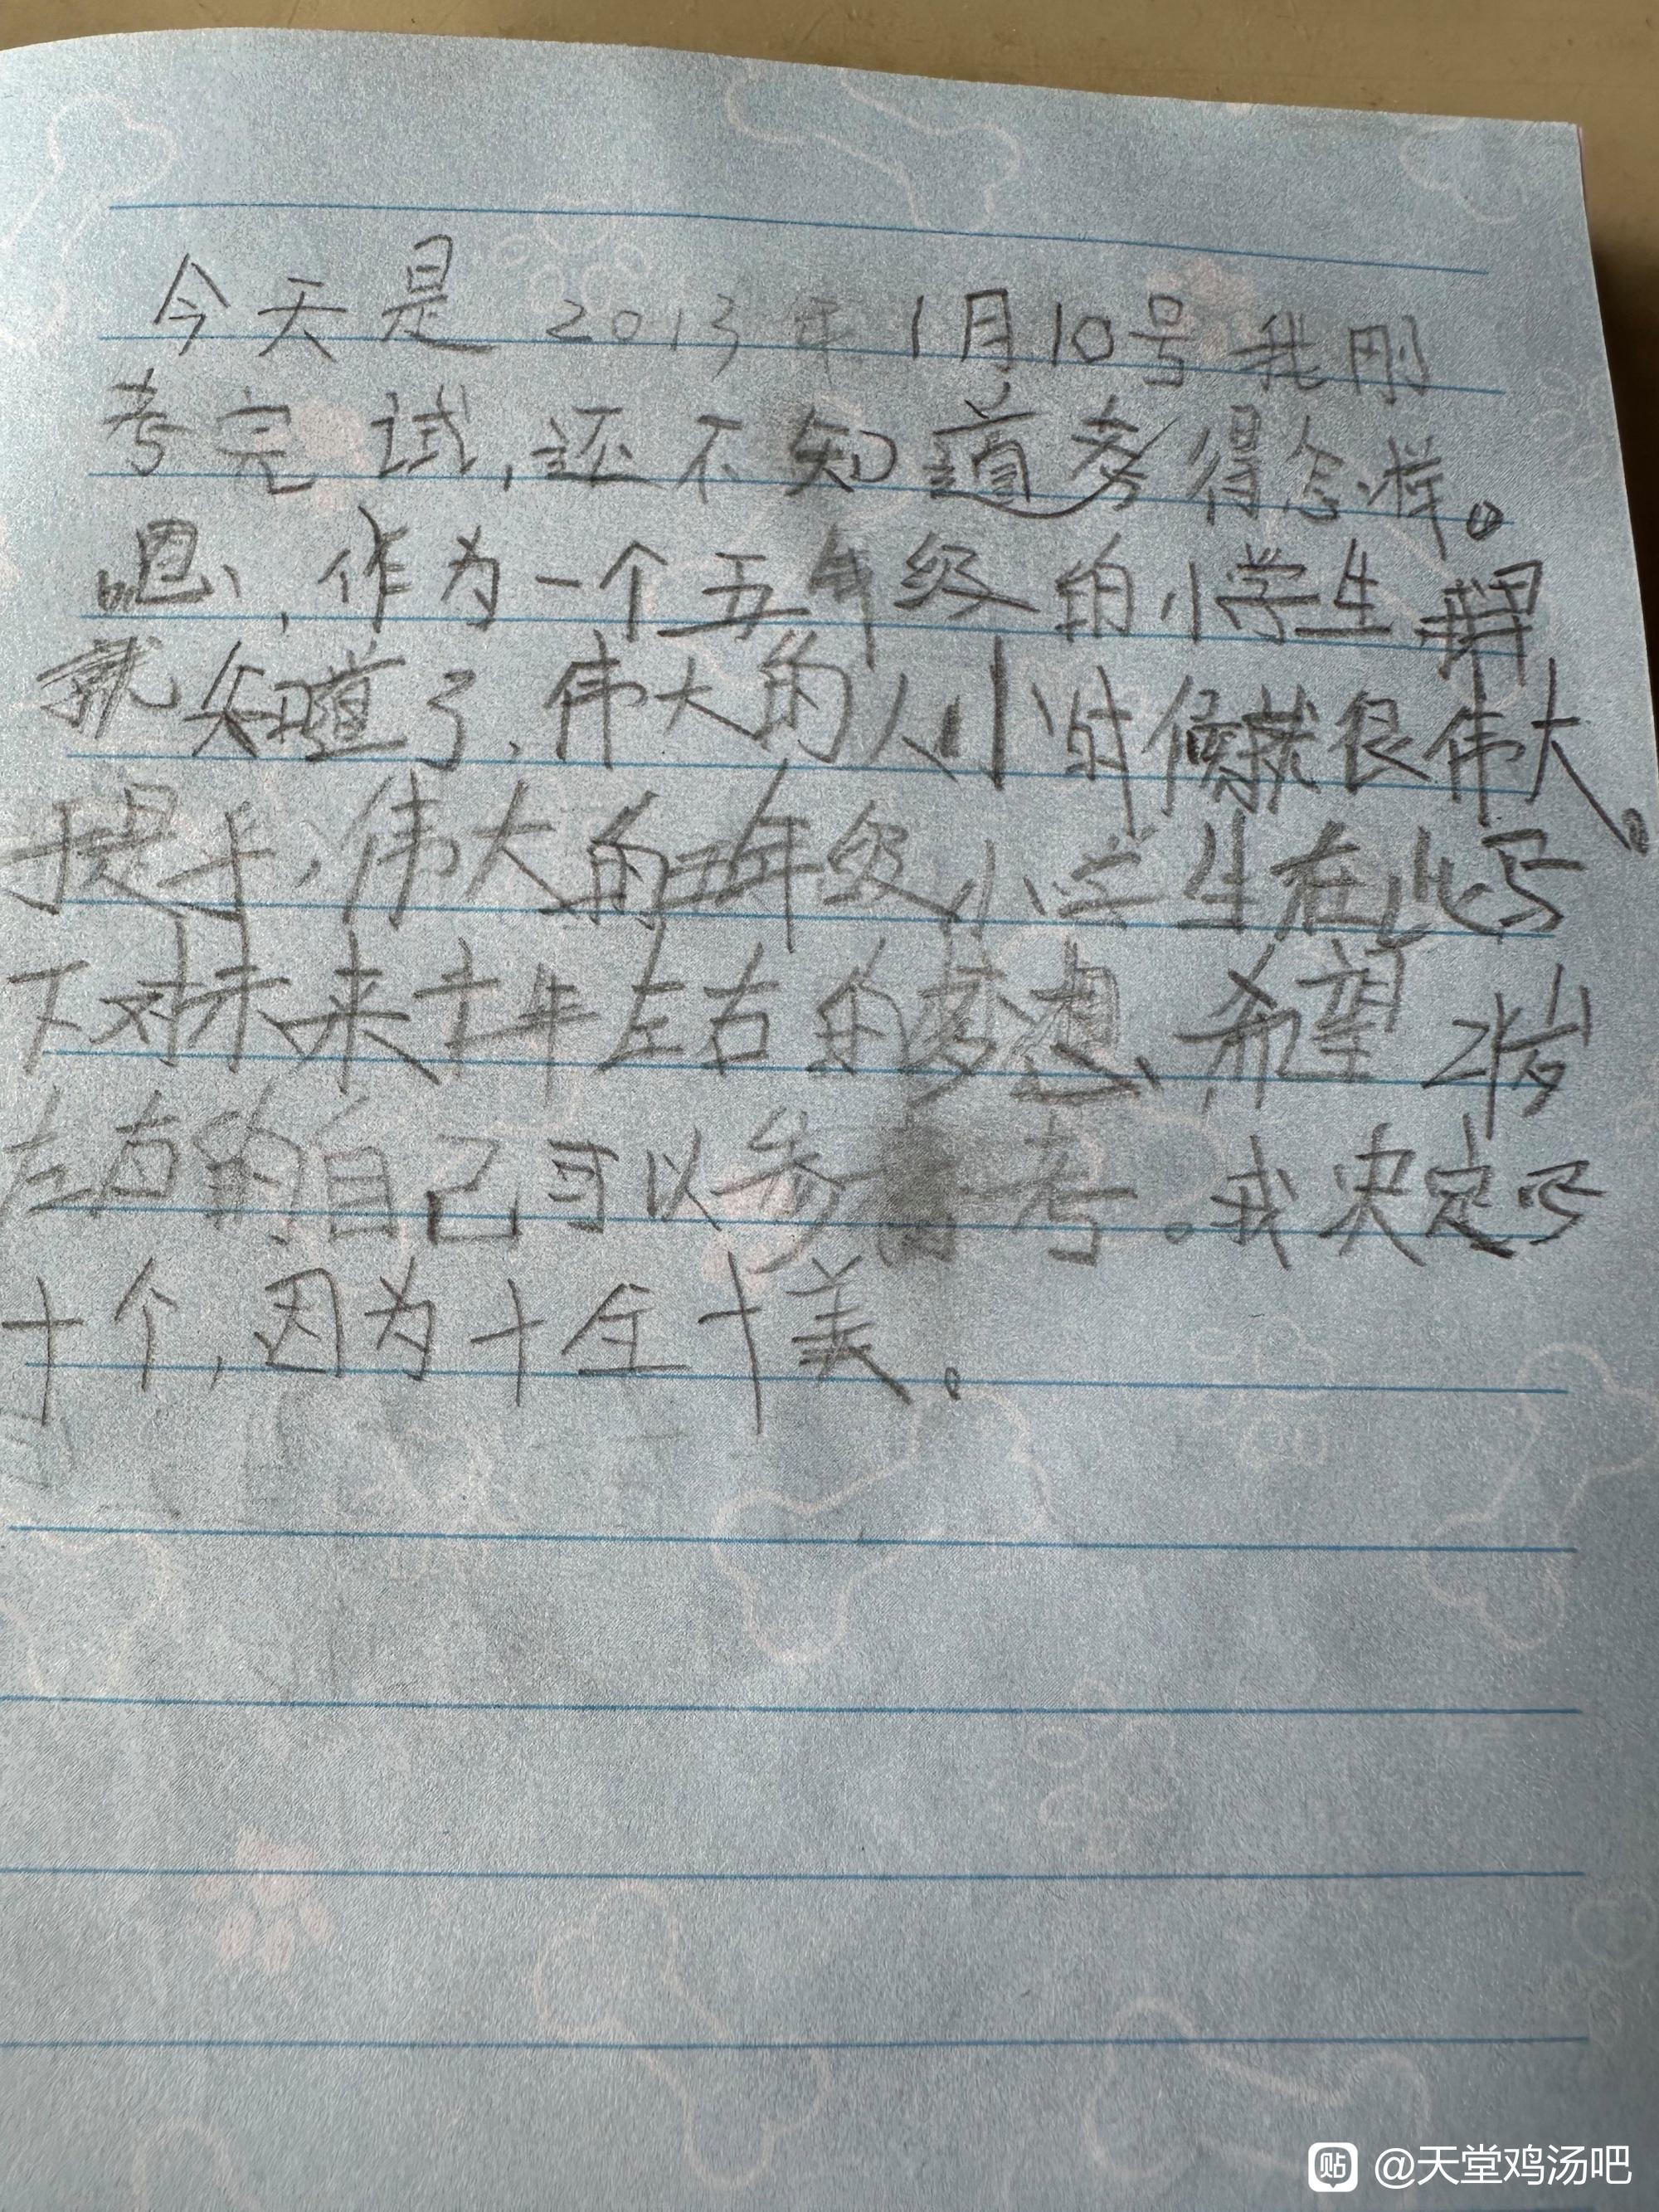 今天是 2013年1月10号 我刚
考完试,还不知道考得怎样。
嗯,作为一个五年级的小学生
就知道了,伟大的人小时候就很伟大。
于是乎,伟大的五年级小学生在此写
下对未来十年左右的梦想,希望21岁
左右的自己可以参考。我决定写
十个,因为十全十美。
贴 @天堂鸡汤吧